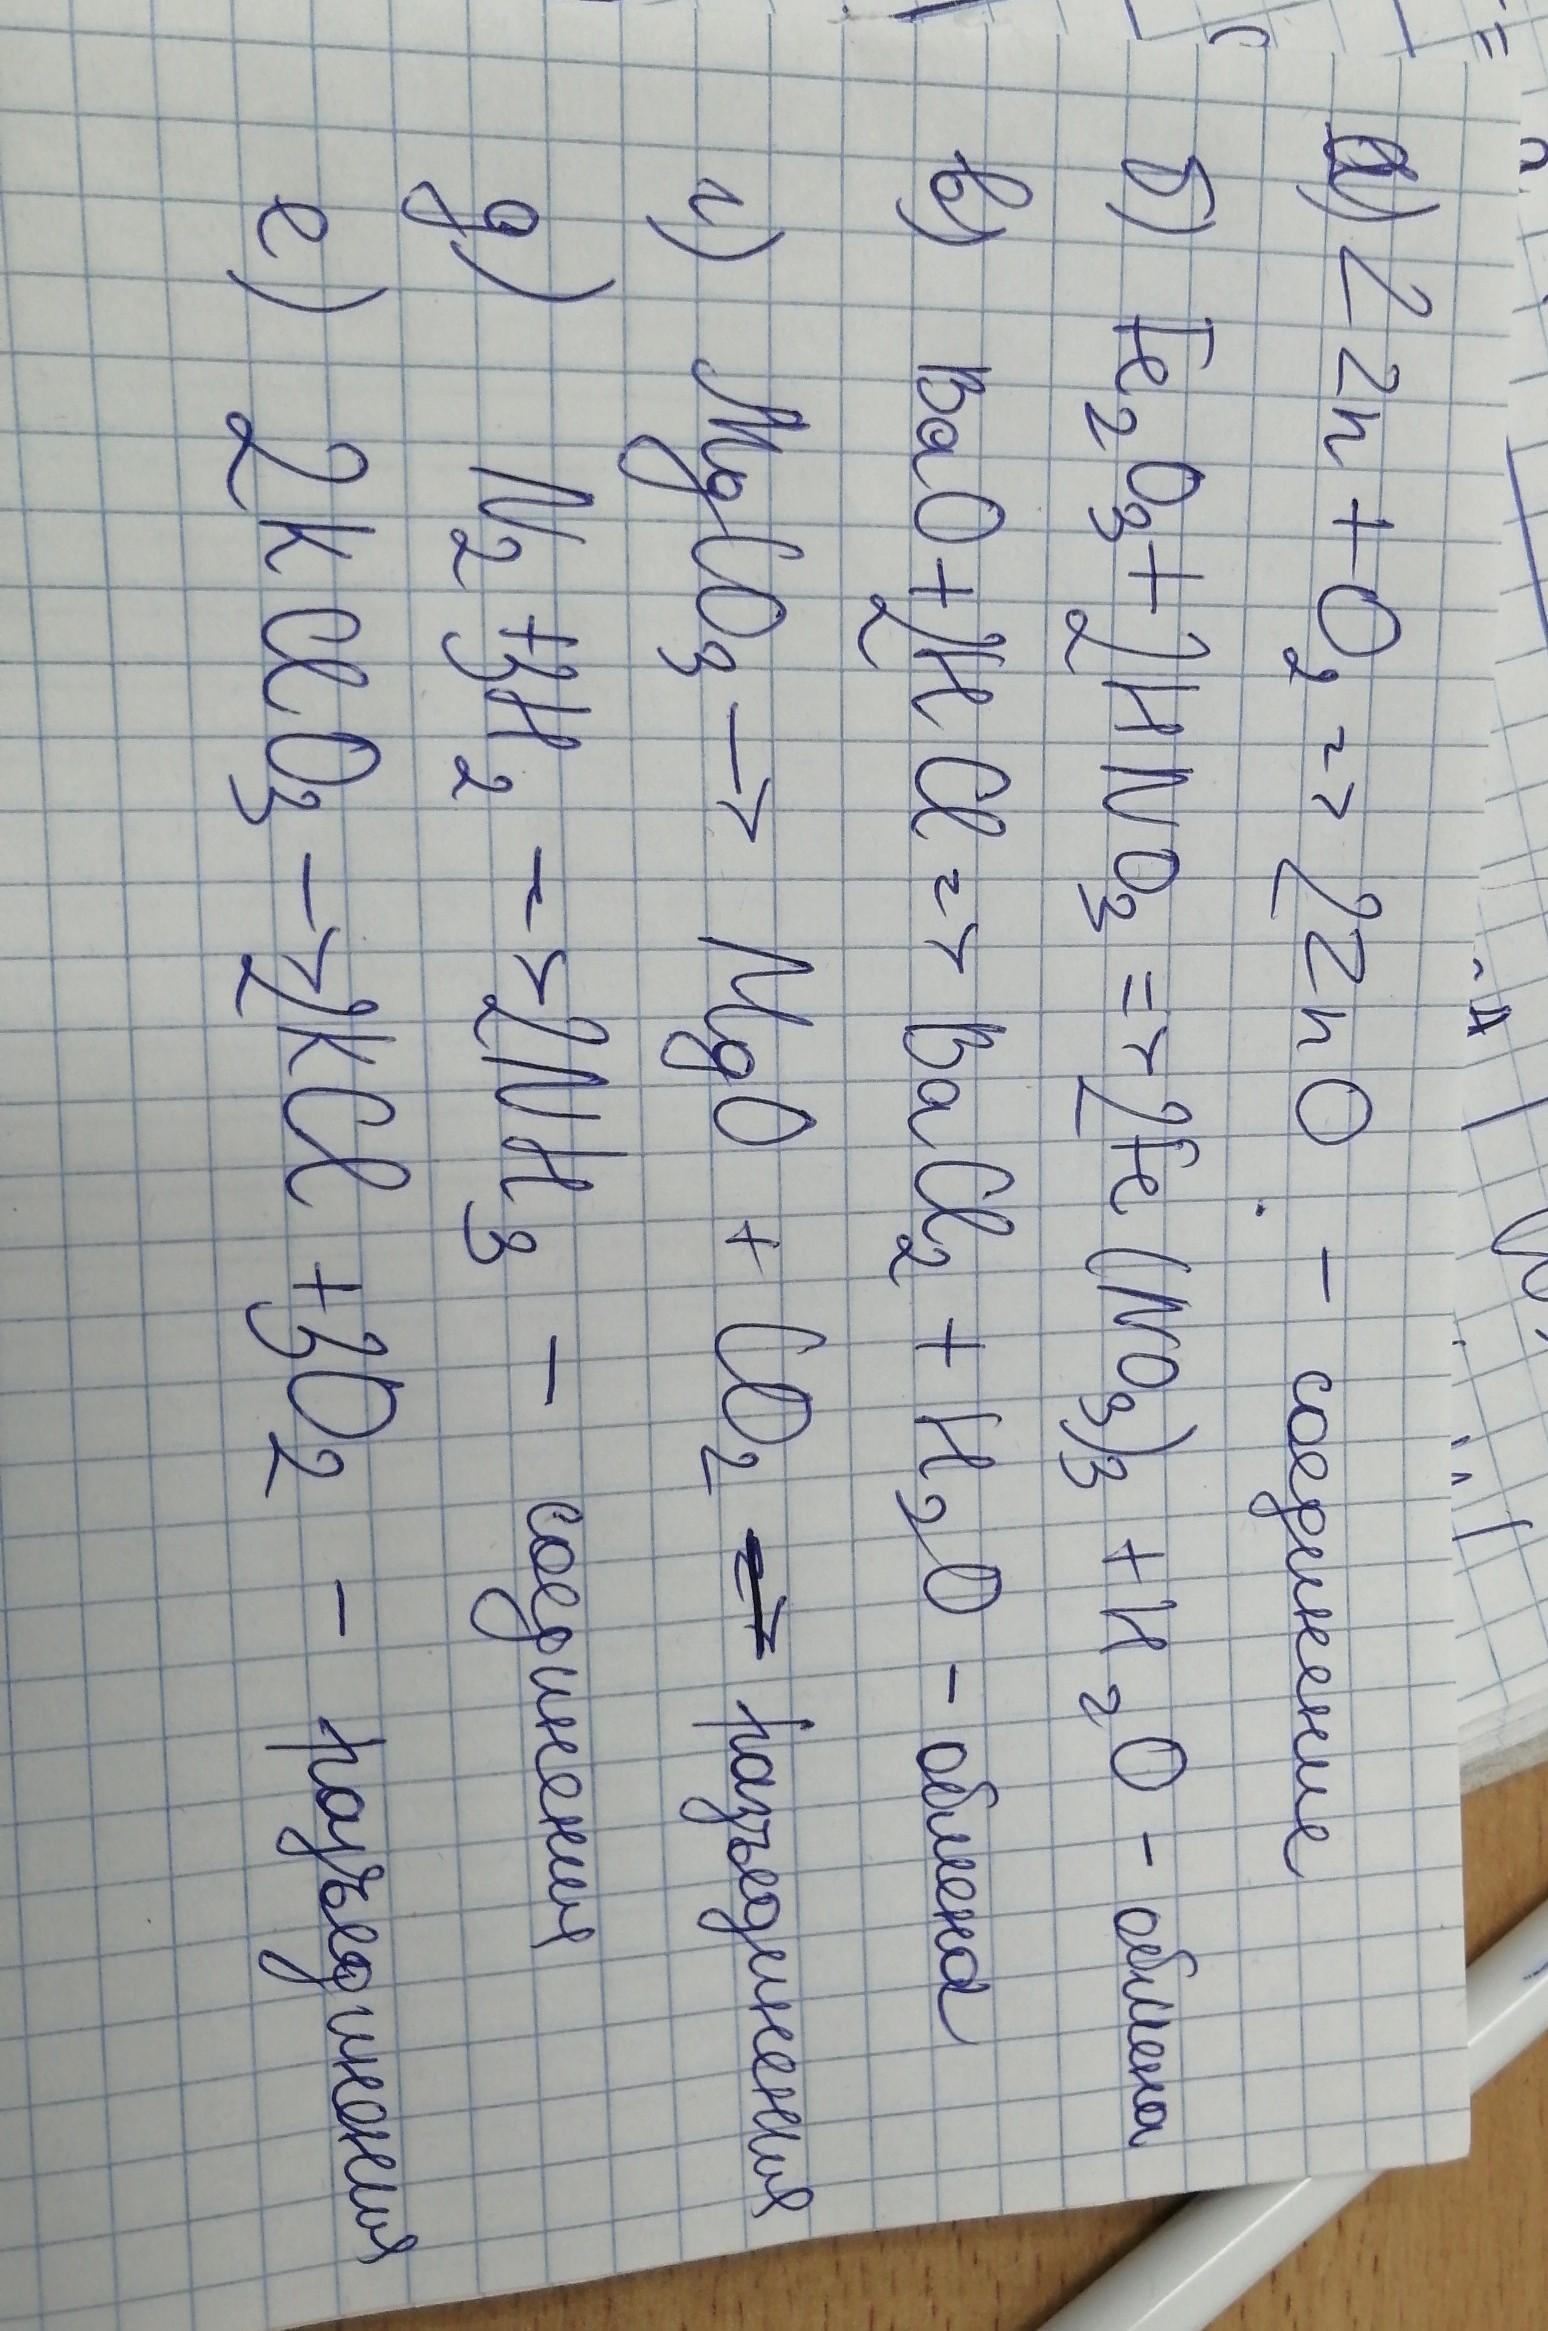 а) 2Zn + O₂ => 2ZnO - соединение
б) Fe₂O₃ + 2HNO₃ => 2Fe(NO₃)₃ + H₂O - обмена
в) BaO + 2HCl => BaCl₂ + H₂O - обмена
г) MgCO₃ → MgO + CO₂ - разъединения
д) N₂ + 3H₂ => 2NH₃ - соединения
е) 2KClO₃ → 2KCl + 3O₂ - разъединения